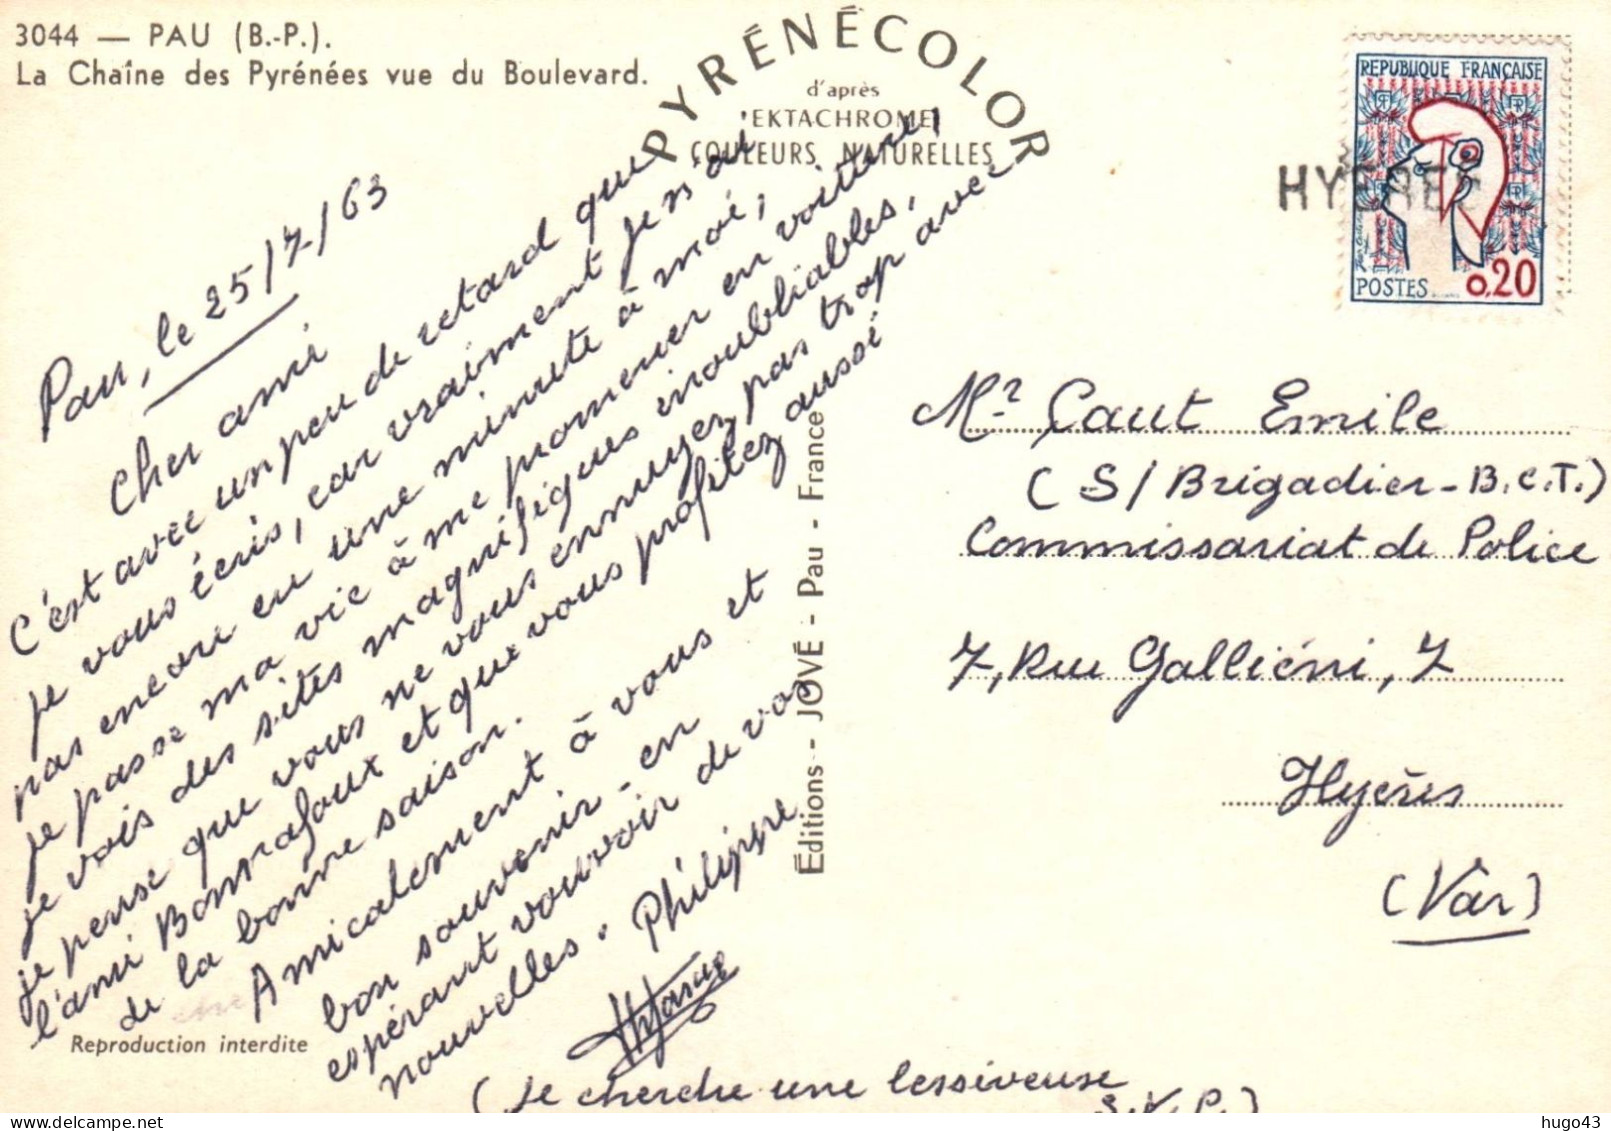 3044 — PAU (B.-P.).
La Chaîne des Pyrénées vue du Boulevard.
PYRÉNÉCOLOR
d'après
EKTACHROME
COULEURS NATURELLES
REPUBLIQUE FRANÇAISE
POSTES
0,20
HYERES
Pau, le 25/7/63
Cher ami
C'est avec un peu de retard que
je vous écris, car vraiment je n'ai
pas encore eu une minute à moi,
je passe ma vie à me promener en voiture,
je vois des sites magnifiques inoubliables,
je pense que vous ne vous ennuyez pas trop avec
l'ami Bonnafoux et que vous profitez aussi
de la bonne saison.
Amicalement à vous et
bon souvenir - en
espérant vouvoir de vos
nouvelles. Philippe
(Je cherche une lessiveuse
S.V.P.)
Éditions - JOVÉ - Pau - France
Mr Caut Emile
(S/Brigadier - B.C.T.)
Commissariat de Police
7, Rue Galliéni, 7
Hyères
(Var)
Reproduction interdite
hugo43